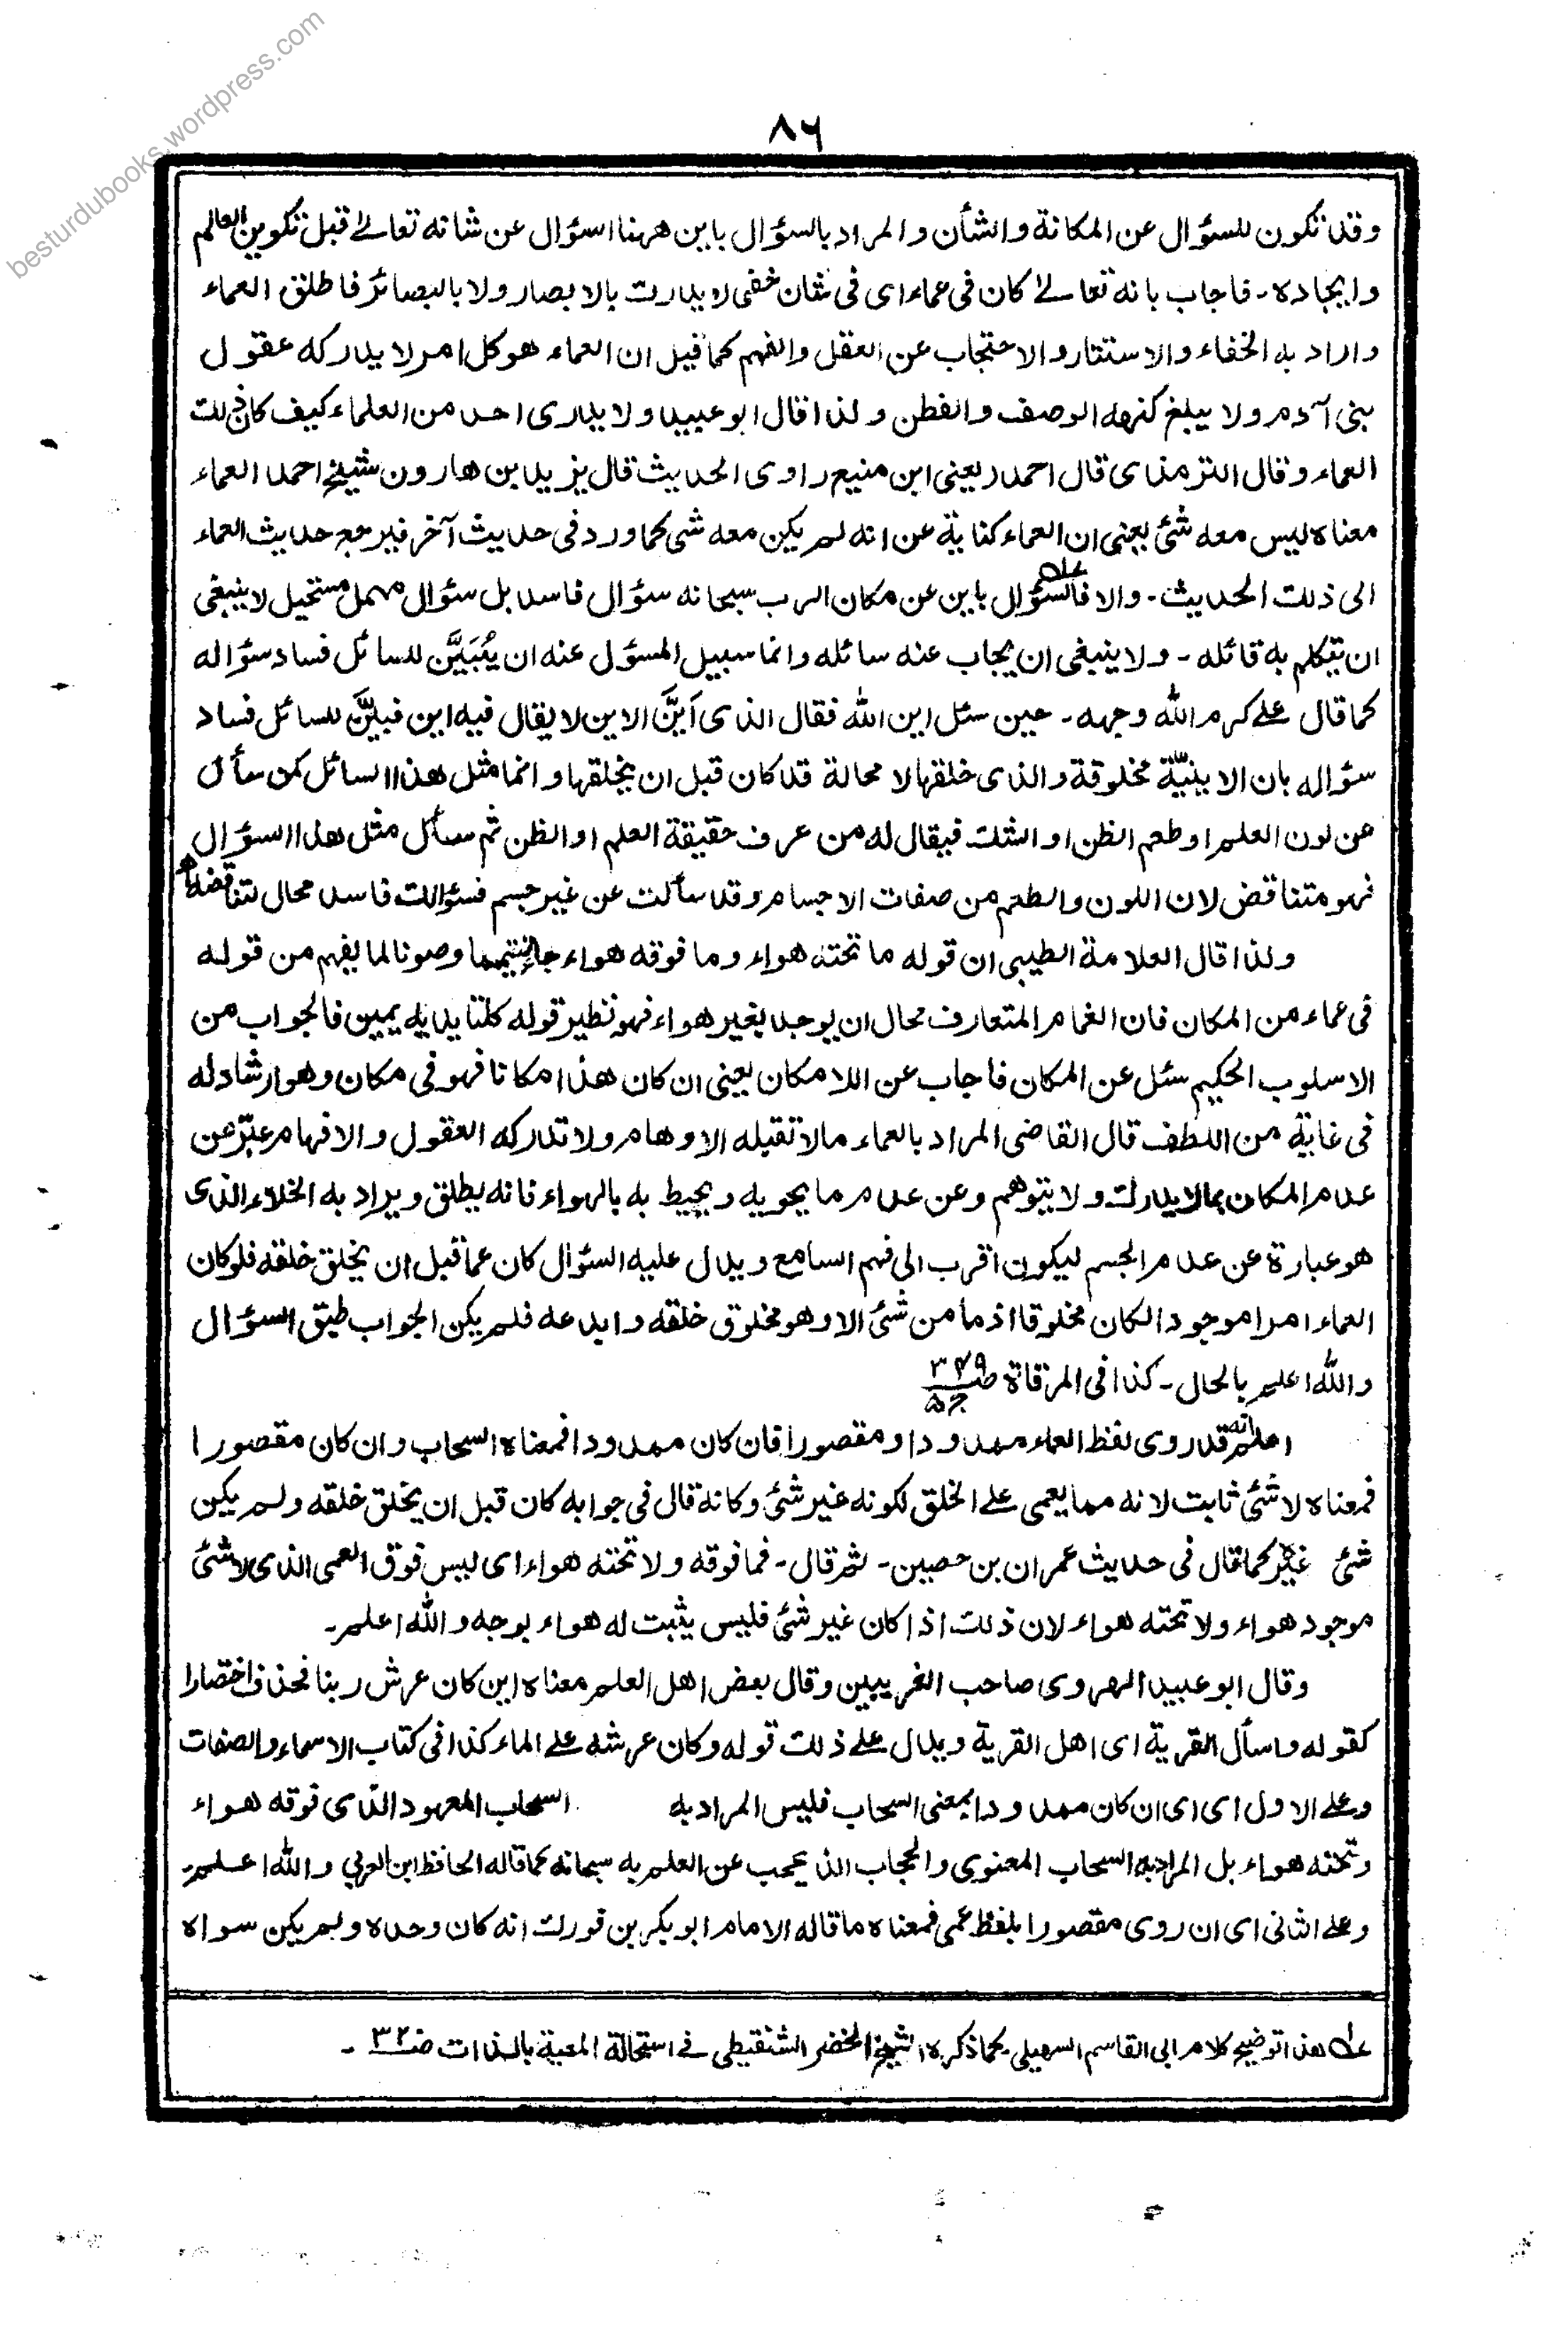 besturdubooks.wordpress.com
۸۶
وقد تكون للسؤال عن المكانة والشأن والمراد بالسؤال باين ههنا السؤال عن شانه تعالے قبل تكوين العالم
وايجاده۔ فاجاب بانه تعالے كان فى عماء اى فى شان خفى لا يدرك بالابصار ولا بالبصائر فاطلق العماء
واراد به الخفاء والاستتار والاحتجاب عن العقل والفهم كما قيل ان العماء هو كل امر لا يدركه عقول
بنى آدم ولا يبلغ كنهه الوصف والفطن ولذا قال ابو عبيد ولا يدرى احد من العلماء كيف كان ذلك
العماء وقال الترمذى قال احمد يعنى ابن منيع راوى الحديث قال يزيد بن هارون شيخ احمد العماء
معناه ليس معه شئ يعنى ان العماء كناية عن انه لم يكن معه شى كما ورد فى حديث آخر فيرجع حديث العماء
الى ذلك الحديث۔ والا فالسؤال عله باين عن مكان الرب سبحانه سؤال فاسد بل سؤال مهمل مستحيل لا ينبغى
ان يتكلم به قائله۔ ولا ينبغى ان يجاب عنه سائله وانما سبيل المسؤل عنه ان يُبَيَّن للسائل فساد سؤاله
كما قال علے كرم الله وجهه۔ حين سئل اين الله فقال الذى اَيَّنَ الاين لا يقال فيه اين فبيَّن للسائل فساد
سؤاله بان الاينيّة مخلوقة والذى خلقها لا محالة قد كان قبل ان يخلقها وانما مثل هذا السائل كمن سأل
عن لون العلم او طعم الظن او الشك فيقال له من عرف حقيقة العلم او الظن ثم سأل مثل هذا السؤال
فهو متناقض لان اللون والطعم من صفات الاجسام وقد سألت عن غير جسم فسؤالك فاسد محال لتناقضه اه
ولذا قال العلامة الطيبى ان قوله ما تحته هواء وما فوقه هواء جاء تتميما وصونا لما يفهم من قوله
فى عماء من المكان فان الغمام المتعارف محال ان يوجد بغير هواء فهو نظير قوله كلتا يديه يمين فالجواب من
الاسلوب الحكيم سئل عن المكان فاجاب عن اللامكان يعنى ان كان هذا مكانا فهو فى مكان وهو ارشاد له
فى غاية من اللطف قال القاضى المراد بالعماء مالا تقبله الاوهام ولا تدركه العقول والافهام عبّر عن
عدم المكان بمالا يدرك ولا يتوهم وعن عدم ما يحويه ويحيط به بالهواء فانه يطلق ويراد به الخلاء الذى
هو عبارة عن عدم الجسم ليكون اقرب الى فهم السامع ويدل عليه السؤال كان عما قبل ان يخلق خلقه فلو كان
العماء امرا موجودا لكان مخلوقا اذ ما من شئ الا وهو مخلوق خلقه وابدعه فلم يكن الجواب طبق السؤال
والله اعلم بالحال۔ كذا فى المرقاة صـ ۳۴۹ ج۵
اعلم انه قد روى لفظ العماء ممدودا ومقصورا فان كان ممدودا فمعناه السحاب وان كان مقصورا
فمعناه لا شئ ثابت لانه مما يعمى علے الخلق لكونه غير شئ وكانه قال فى جوابه كان قبل ان يخلق خلقه ولم يكن
شئ غيره كما قال فى حديث عمران بن حصين۔ ثم قال۔ فما فوقه ولا تحته هواء اى ليس فوق العمى الذى لا شئ
موجود هواء ولا تحته هواء لان ذلك اذا كان غير شئ فليس يثبت له هواء بوجه والله اعلم۔
وقال ابو عبيد الهروى صاحب الغريبين وقال بعض اهل العلم معناه اين كان عرش ربنا فحذف اختصارا
كقوله واسأل القرية اى اهل القرية ويدل علے ذلك قوله وكان عرشه علے الماء كذا فى كتاب الاسماء والصفات
وعلے الاول اى اى ان كان ممدودا بمعنى السحاب فليس المراد به السحاب المعهود الذى فوقه هواء
وتحته هواء بل المراد به السحاب المعنوى والحجاب الذ يحجب عن العلم به سبحانه كما قاله الحافظ ابن العربي والله اعلم
وعلے الثانى اى ان روى مقصورا بلفظ عمى فمعناه ما قاله الامام ابو بكر بن فورك انه كان وحده ولم يكن سواه
عله هذا توضيح كلام ابى القاسم السهيلى كما ذكره الشيخ الخضر الشنقيطى فے استحالة المعية بالذات صـ ۳۲ ۔